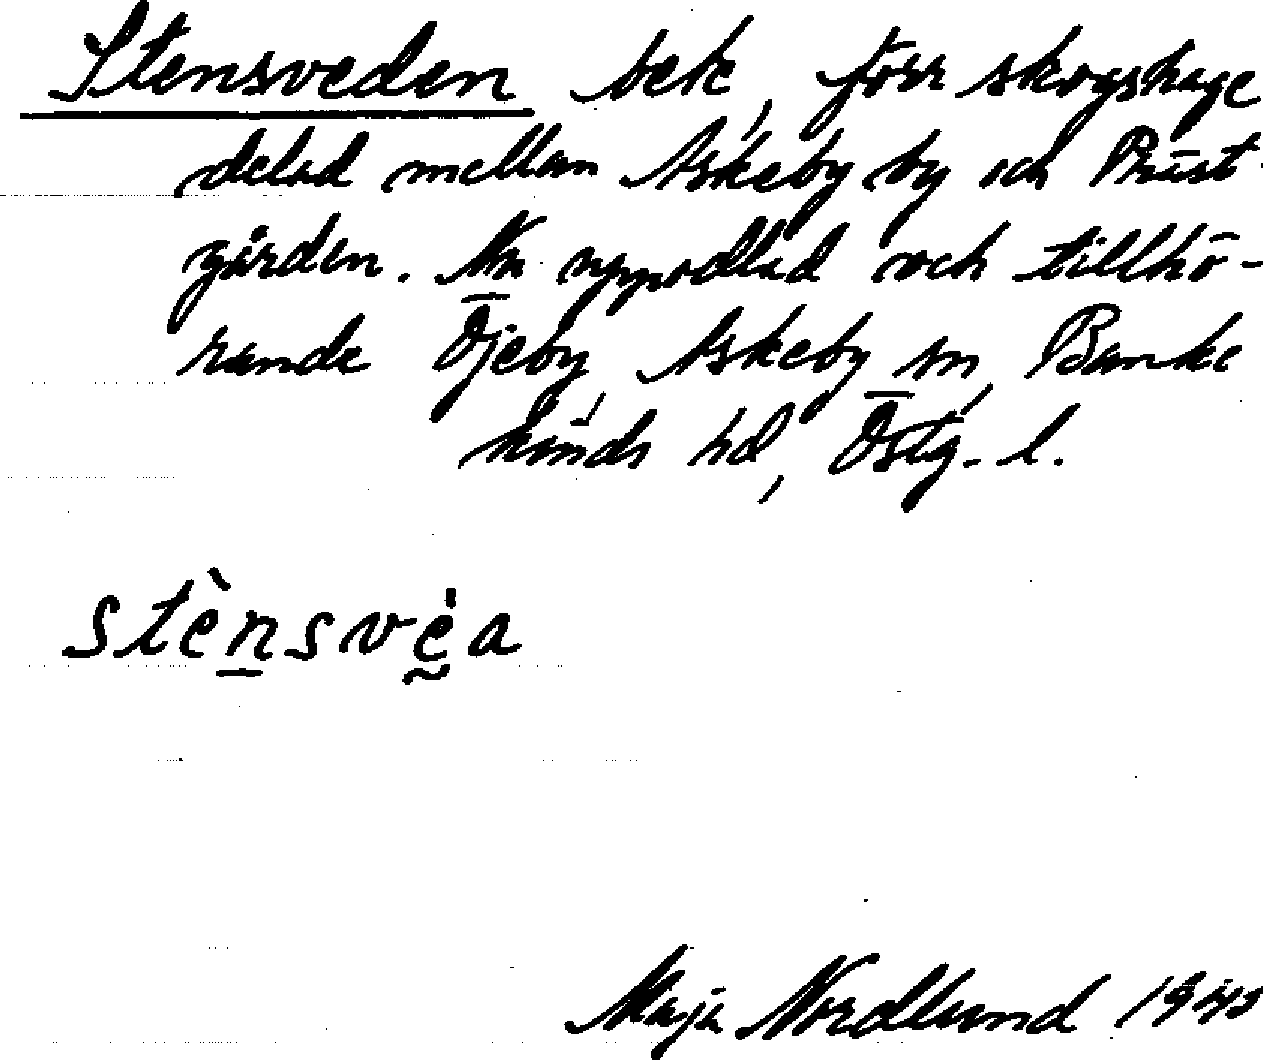 Stensveden bek, förr skogshage
delad mellan Askeby by och Präst-
gården. Nu nyodlad och tillhö-
rande Öjeby, Askeby sn, Banke
kinds hd, Östg. l.
stènsvèa
Maja Nordlund